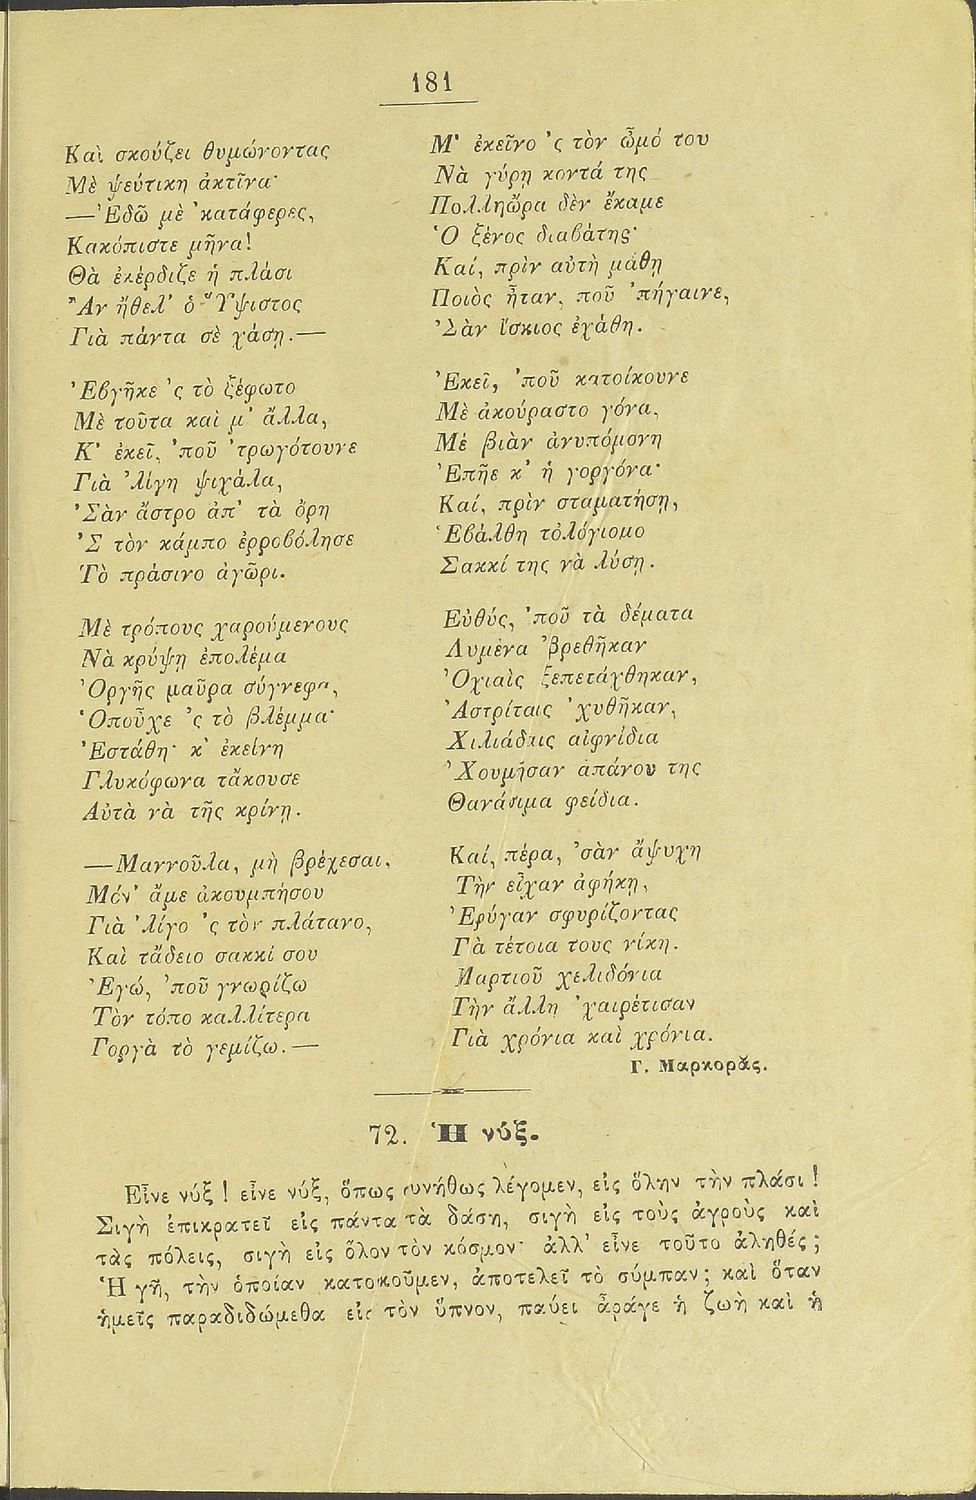 181
Καὶ σκούζει θυμώνοντας
Μὲ ψεύτικη ἀκτῖνα·
—'Εδῶ μὲ 'κατάφερες,
Κακόπιστε μῆνα!
Θὰ ἐκέρδιζε ἡ πλάσι
Ἂν ἤθελ' ὁ Ὕψιστος
Γιὰ πάντα σὲ χάσῃ.—
Ἐβγῆκε 'ς τὸ ξέφωτο
Μὲ τοῦτα καὶ μ' ἄλλα,
Κ' ἐκεῖ, 'ποῦ 'τρωγότουνε
Γιὰ 'λίγη ψιχάλα,
'Σὰν ἄστρο ἀπ' τὰ ὄρη
'Σ τὸν κάμπο ἐρροβόλησε
Τὸ πράσινο ἀγῶρι.
Μὲ τρόπους χαρούμενους
Νὰ κρύψῃ ἐπολέμα
Ὀργῆς μαῦρα σύγνεφα,
Ὁποῦχε 'ς τὸ βλέμμα·
Ἐστάθη· κ' ἐκείνη
Γλυκόφωνα τἄκουσε
Αὐτὰ νὰ τῆς κρίνῃ.
—Μαννοῦλα, μὴ βρέχεσαι,
Μόν' ἄμε ἀκουμπήσου
Γιὰ 'λίγο 'ς τὸν πλάτανο,
Καὶ τἄδειο σακκί σου
Ἐγώ, 'ποῦ γνωρίζω
Τὸν τόπο καλλίτερα
Γοργὰ τὸ γεμίζω.—
Μ' ἐκεῖνο 'ς τὸν ὦμό του
Νὰ γύρῃ κοντά της
Πολληὥρα δὲν ἔκαμε
Ὁ ξένος διαβάτης·
Καί, πρὶν αὐτὴ μάθῃ
Ποιὸς ἦταν, ποῦ 'πήγαινε,
'Σὰν ἴσκιος ἐχάθη.
Ἐκεῖ, 'ποῦ κατοίκουνε
Μὲ ἀκούραστο γόνα,
Μὲ βιὰν ἀνυπόμονη
Ἐπῆε κ' ἡ γοργόνα·
Καί, πρὶν σταματήσῃ,
Ἐβάλθη τὁλόγιομο
Σακκί της νὰ λύσῃ.
Εὐθύς, 'ποῦ τὰ δέματα
Λυμένα 'βρεθῆκαν
Ὀχιαὶς ξεπετάχθηκαν,
Ἀστρίταις 'χυθῆκαν,
Χιλιάδαις αἰφνίδια
Ἐχουμῆσαν ἀπάνου της
Θανάσιμα φείδια.
Καί, πέρα, 'σὰν ἄψυχη
Τὴν εἶχαν ἀφήκῃ,
Ἐφύγαν σφυρίζοντας
Γὰ τέτοια τους νίκη.
Μαρτιοῦ χελιδόνια
Τὴν ἄλλη 'χαιρέτισαν
Γιὰ χρόνια καὶ χρόνια.
Γ. Μαρκορᾶς.
72. Ἡ νύξ.
Εἶνε νύξ! εἶνε νύξ, ὅπως συνήθως λέγομεν, εἰς ὅλην τὴν πλάσι!
Σιγὴ ἐπικρατεῖ εἰς πάντα τὰ δάση, σιγὴ εἰς τοὺς ἀγροὺς καὶ
τὰς πόλεις, σιγὴ εἰς ὅλον τὸν κόσμον· ἀλλ' εἶνε τοῦτο ἀληθές;
Ἡ γῆ, τὴν ὁποίαν κατοικοῦμεν, ἀποτελεῖ τὸ σύμπαν; καὶ ὅταν
ἡμεῖς παραδιδώμεθα εἰς τὸν ὕπνον, παύει ἆράγε ἡ ζωὴ καὶ ἡ